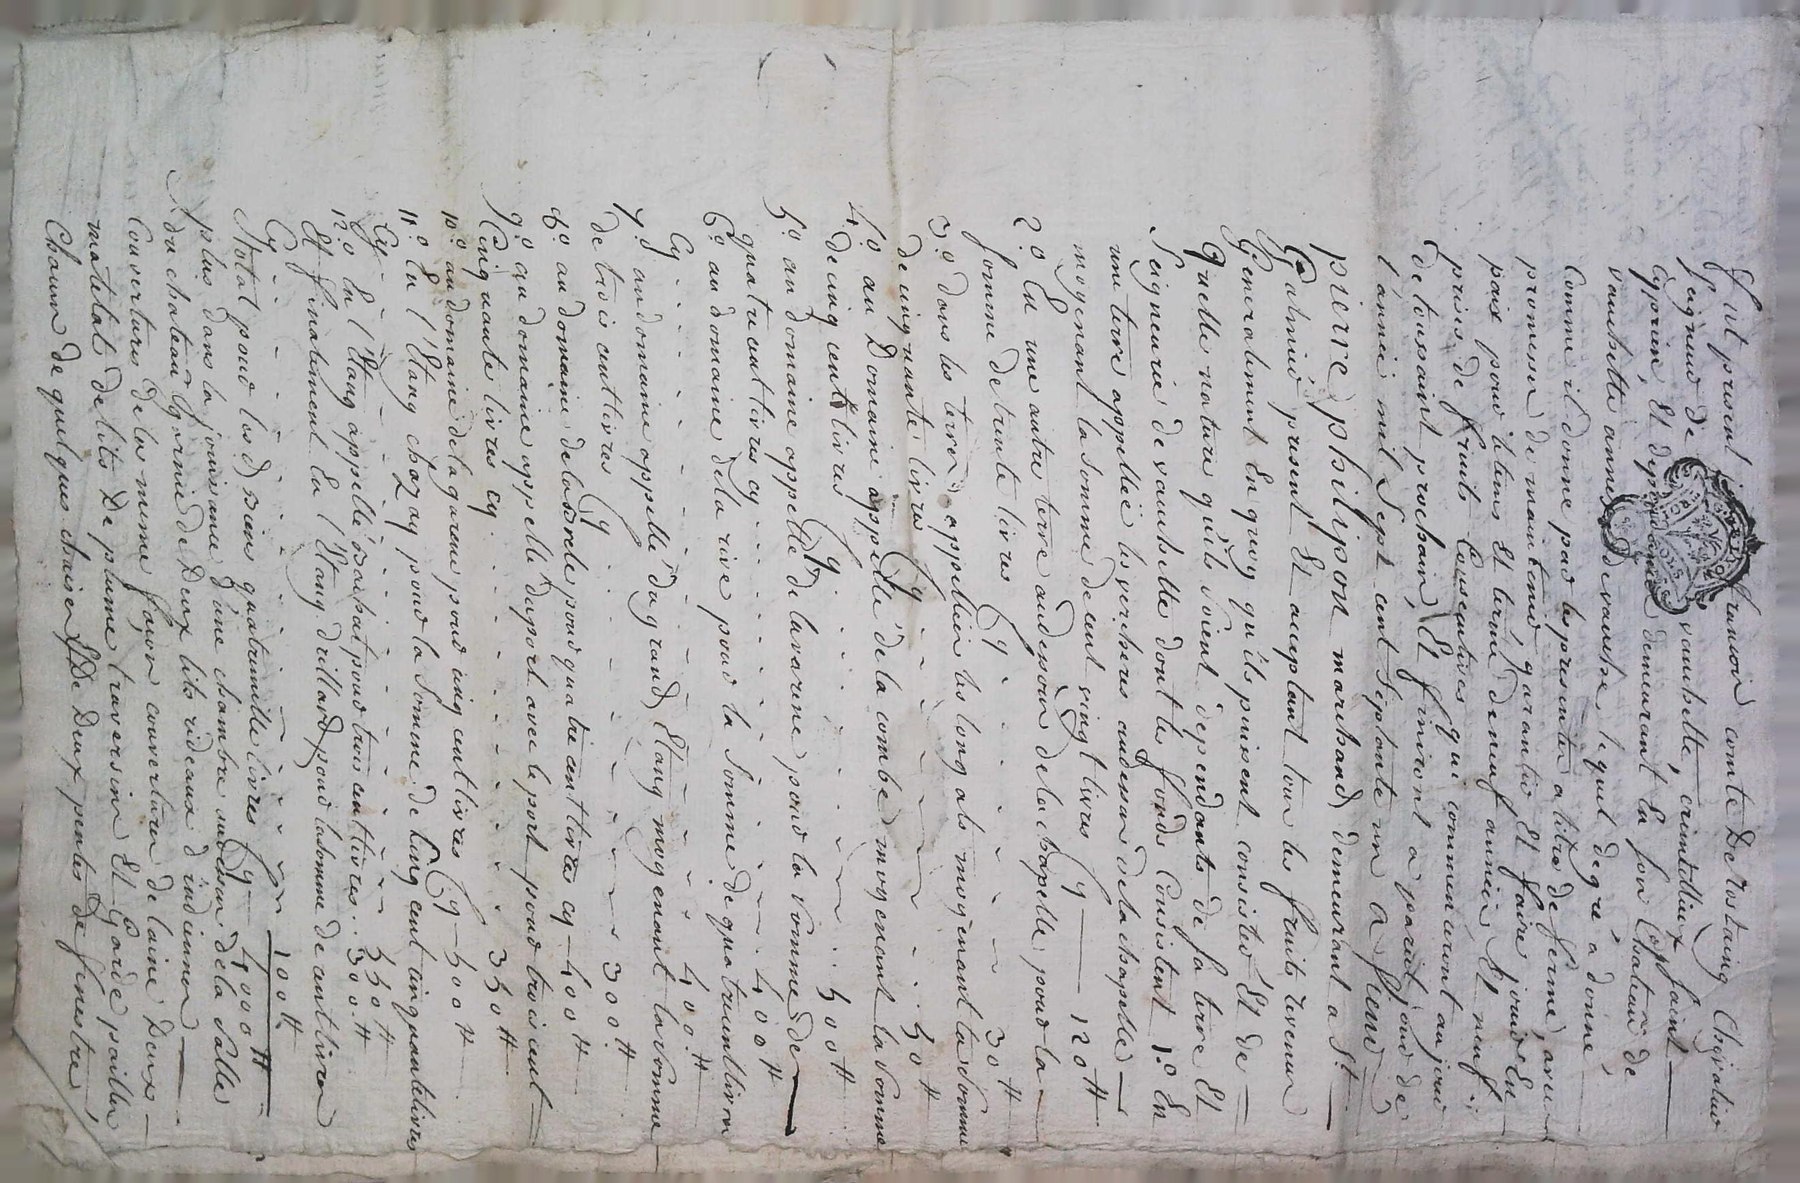 fut présent françois comte De rostaing Chevalier
Seigneur de vauchette, craintillieux saint
Cyprien, Et dépendances demeurant En son Château de
vauchette annexe de vauche, lequel de gré a donné
Comme il donne par les presentes a titre de ferme, avec
promesse de maintenir garantir Et faire jouir En
paix pour le tems Et terme de neuf années Et neuf
prises de fruits Consecutives qui commenceront au jour
de toussaint prochain, Et finiront a pareil jour de
l'année mil Sept cent Septante un a sieur
pierre philipon marchand demeurant a St
Galmier présent Et acceptant tous les fruits revenus
Generalement En quoy qu'ils puissent consister Et de
quelle nature qu'ils soient dépendants de sa terre Et
Seigneurie de vauchette dont les fonds Consistent 1.o En
une terre appellée les verchers audessus de la chapelle
moyenant la somme de cent vingt livres Cy — 120 ₶
2.o En une autre terre audessous de la chapelle pour la
somme de trente livres Cy 30 ₶
3.o dans les terres appellées les long als moyenant la somme
de cinquante livres Cy 50 ₶
4.o au Domaine appellé de la combe moyenant la somme
de cinq cent livres Cy 500 ₶
5.o au domaine appellé de la varenne pour la somme de
quatre cent livres cy 400 ₶
6.o au domaine de la rive pour la Somme de quatre cent livres
Cy 400 ₶
7.o au domaine appellé du grand Etang moyenant la somme
de trois cent livres Cy 300 ₶
8.o au domaine de la pour quatre cent livres cy — 400 ₶
9.o au domaine appellé du port avec le port pour trois cent
Cinquante livres cy 350 ₶
10.o au domaine de la garenne pour cinq cent livres Cy — 500 ₶
11.o En l'Etang chazay pour la Somme de Cinq cent cinquante livres
Cy 550 ₶
12.o En l'Etang appellé pour trois cent livres 300 ₶
Et finalement En l'Etang drillard pour la somme de cent livres
Cy 100 ₶
Total pour les d. biens quatre mille livres Cy — 4000 ₶
plus dans la jouissance d'une chambre audessus de la Salle
du chateau Garnie de Deux lits rideaux d'indienne
Couvertures de la même façon couvertures de laine Deux
matelats de lits De plume traversin Et Garde pailles
Chacun de quelques chaises Et De Deux pentes de fenestre,